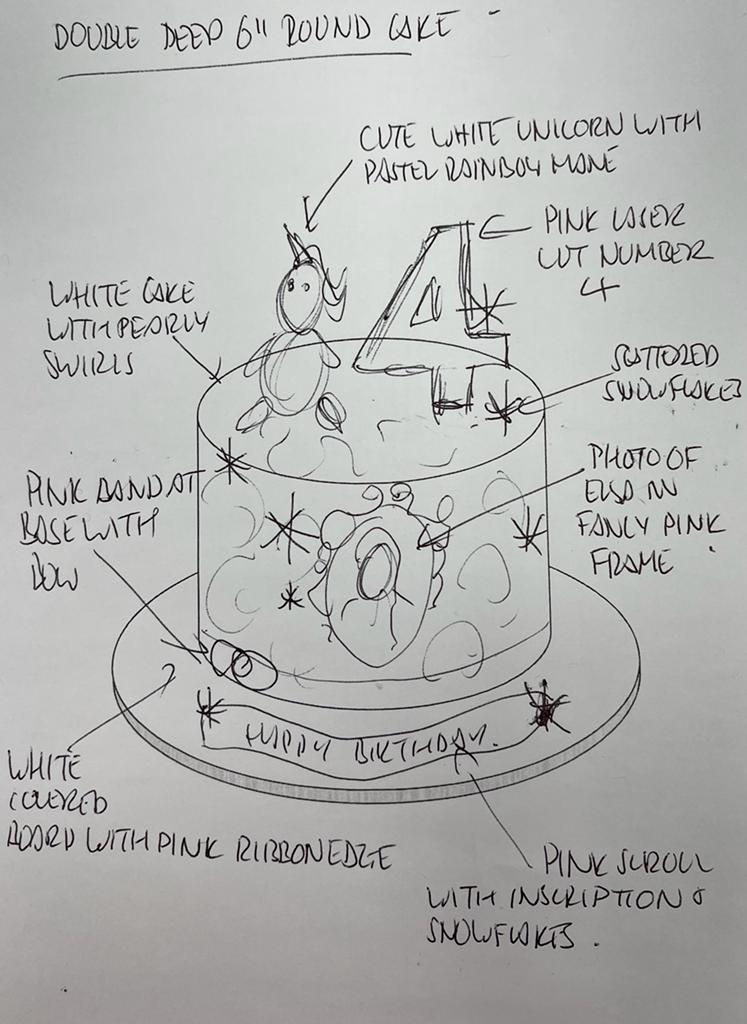 DOUBLE DEEP 6" ROUND CAKE -
CUTE WHITE UNICORN WITH
PASTEL RAINBOW MANE
PINK LASER
CUT NUMBER
4
4
WHITE CAKE
WITH PEARLY
SWIRLS
SCATTERED
SNOWFLAKES
PINK BAND AT
BASE WITH
BOW
PHOTO OF
ELSA IN
FANCY PINK
FRAME
HAPPY BIRTHDAY.
WHITE
COVERED
BOARD WITH PINK RIBBON EDGE
PINK SCROLL
WITH INSCRIPTION &
SNOWFLAKES.